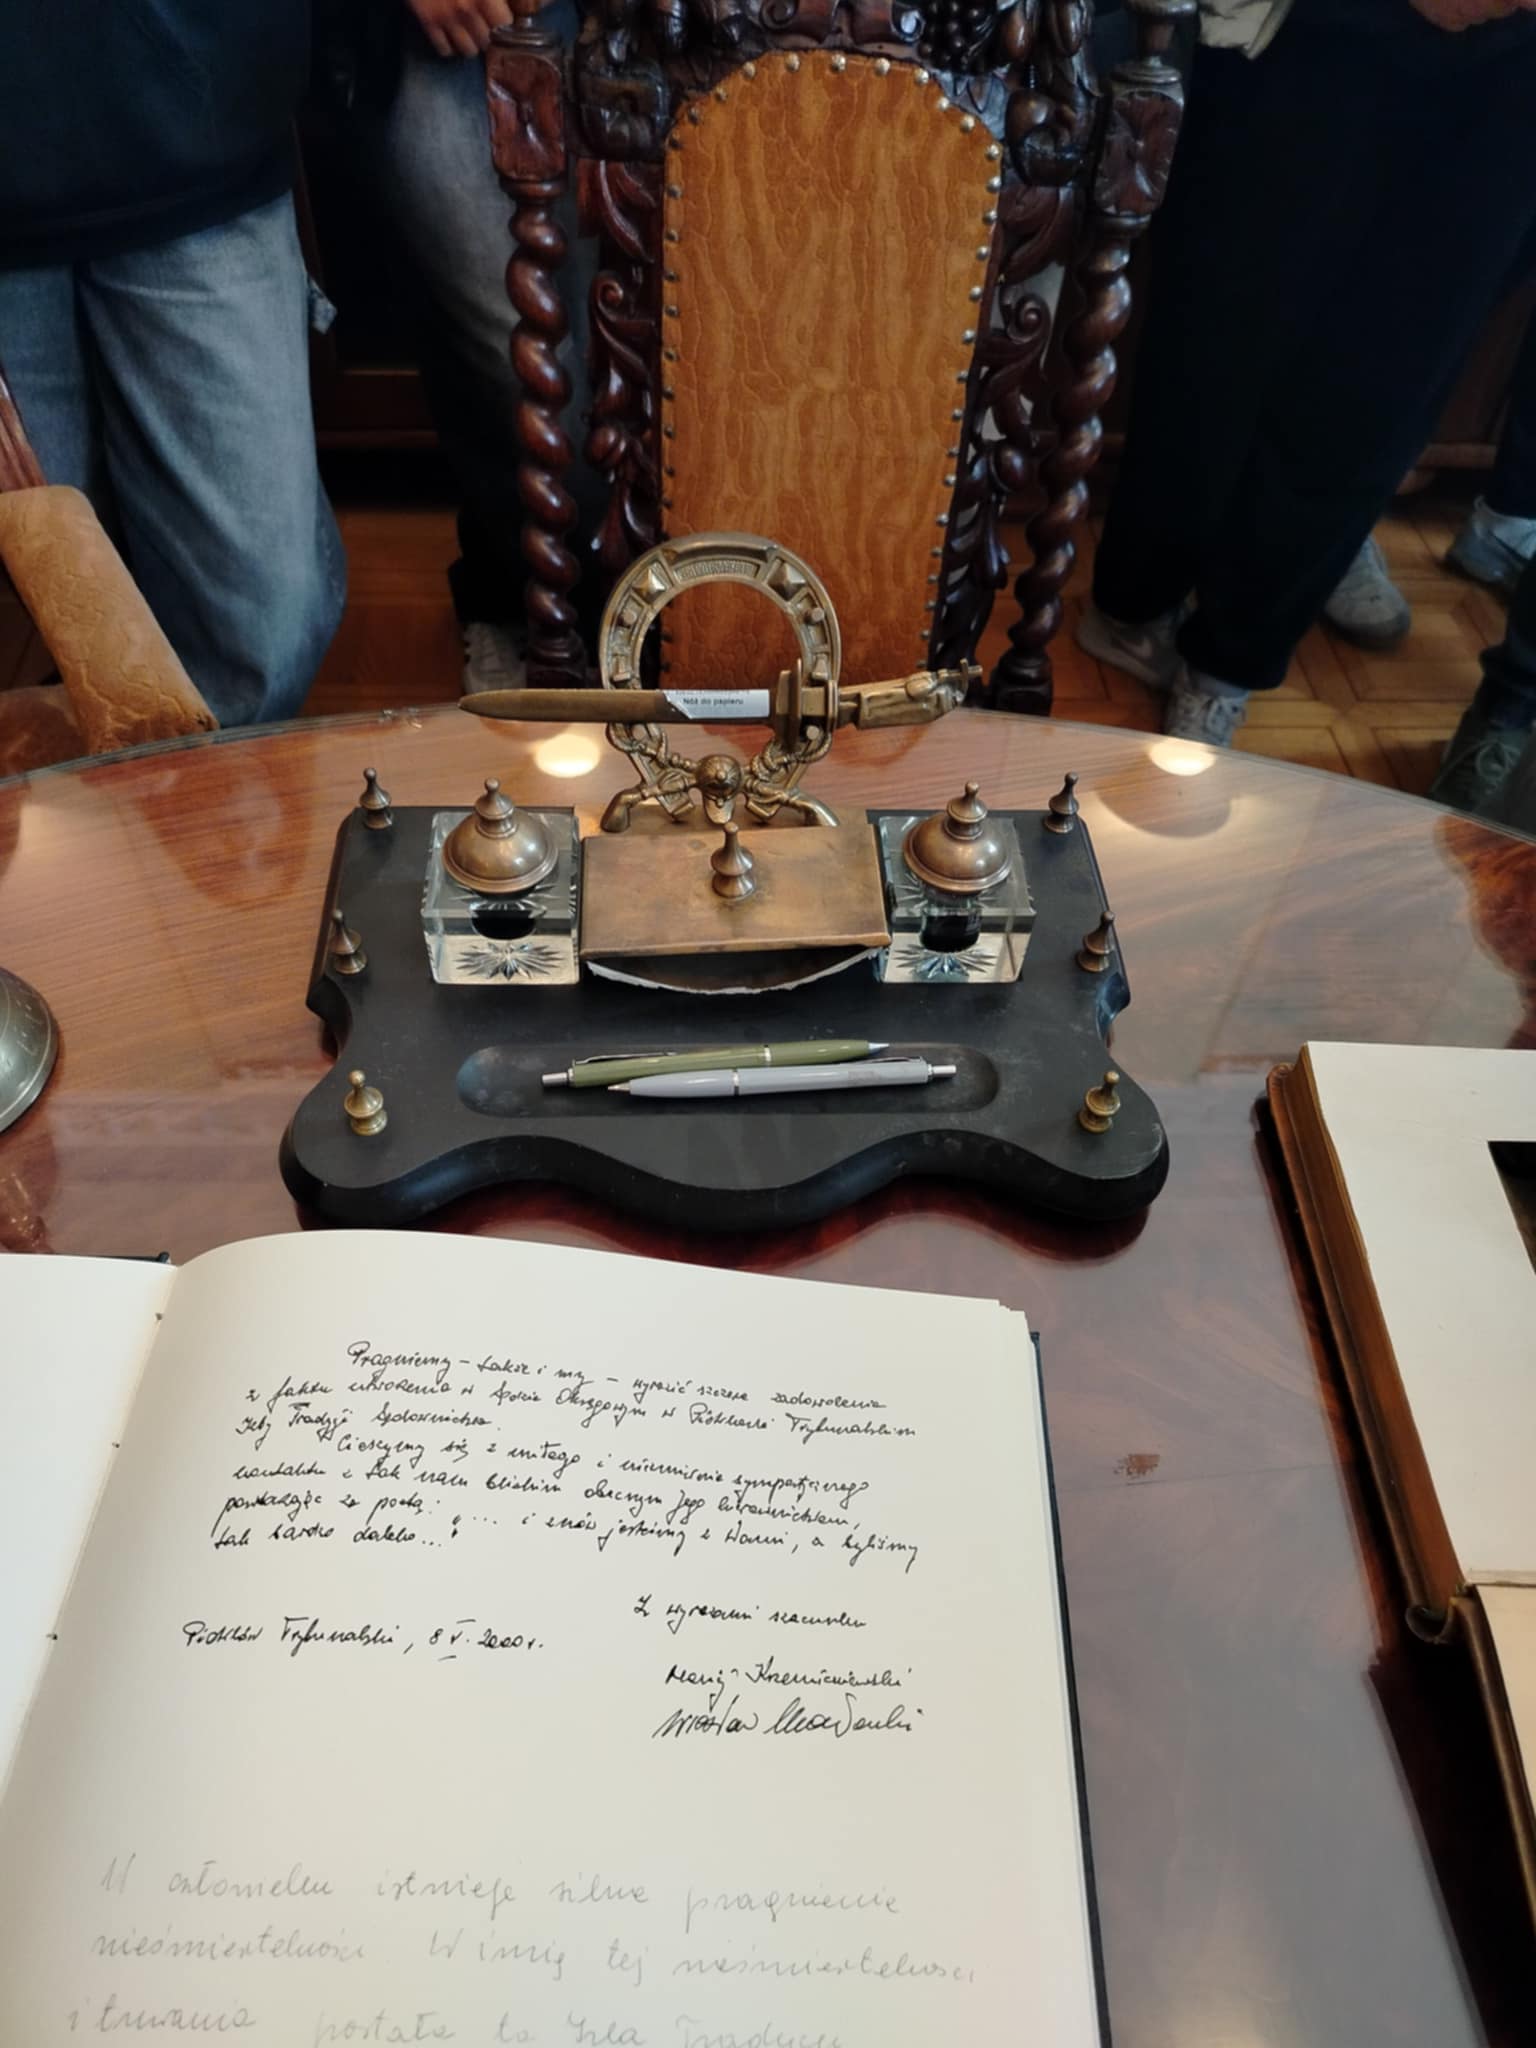 Nóż do papieru
Pragniemy – także i my – wyrazić szczere zadowolenie
z faktu utworzenia w Sądzie Okręgowym w Piotrkowie Trybunalskim
Izby Tradycji Sądownictwa.
Cieszymy się z miłego i niezmiernie sympatycznego
kontaktu z tak nam bliskim obecnym Jego kierownictwem,
powtarzając za poetą: "... i znów jesteśmy z Wami, a byliśmy
tak bardzo daleko..."
Z wyrazami szacunku
Piotrków Trybunalski, 8 V. 2000 r.
W człowieku istnieje silne pragnienie
nieśmiertelności. W imię tej nieśmiertelności
i trwania postała ta Izba Tradycji